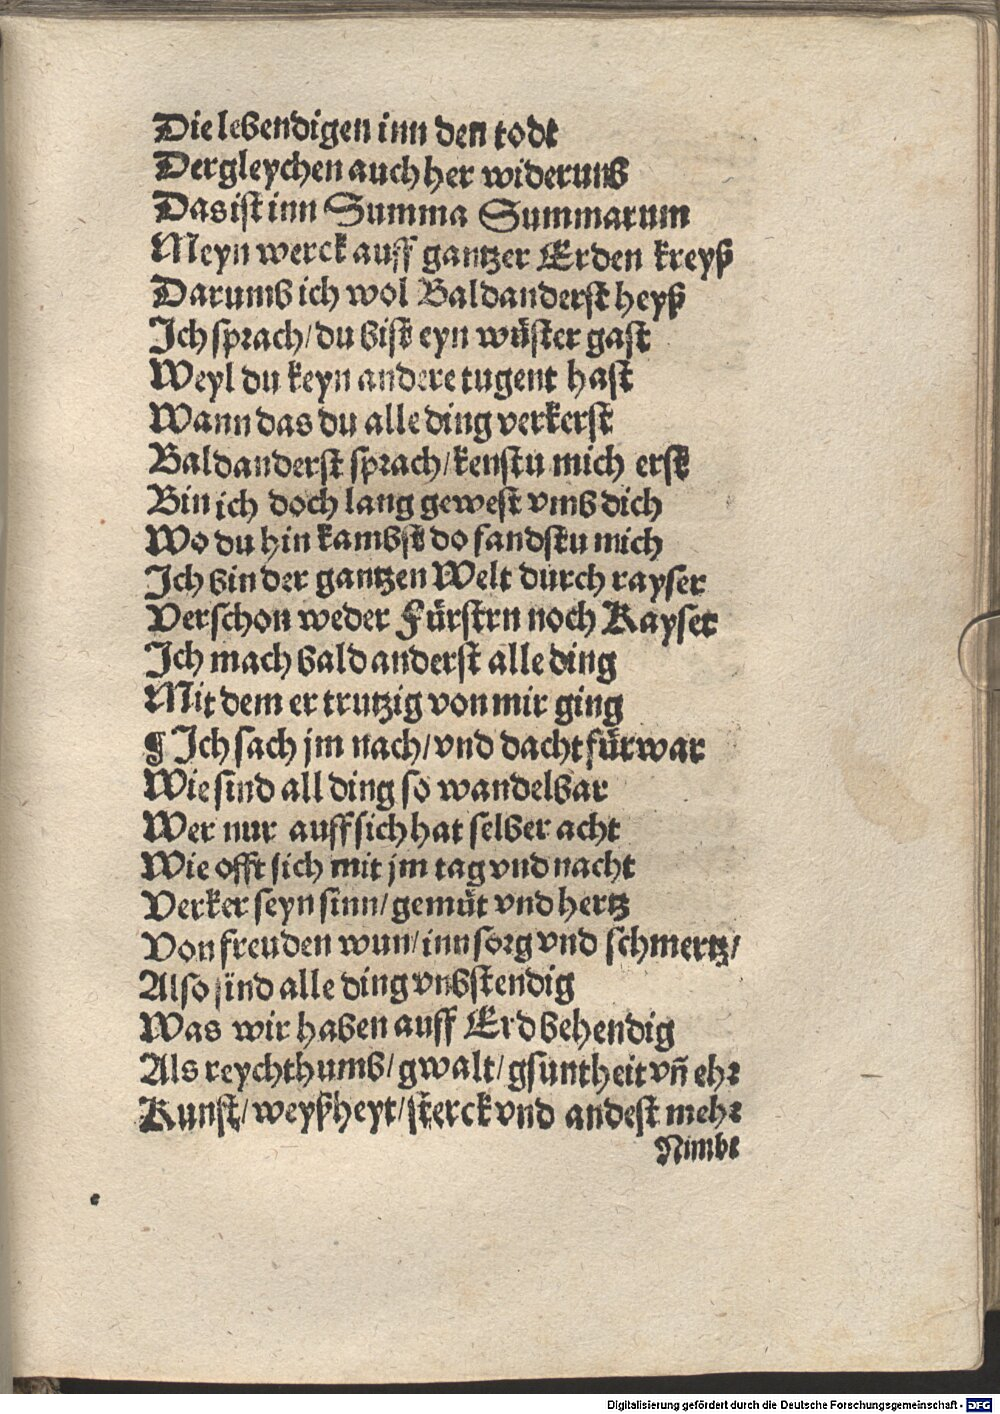 Die lebendigen inn den todt
Dergleychen auch her widerumb
Das ist inn Summa Summarum
Meyn werck auff gantzer Erden kreyß
Darumb ich wol Baldanderst heyß
Ich sprach/ du bist eyn wüster gast
Weyl du keyn andere tugent hast
Wann das du alle ding verkerst
Baldanderst sprach/ kenstu mich erst
Bin ich doch lang gewest vmb dich
Wo du hin kambst do fandstu mich
Ich bin der gantzen Welt durch rayser
Verschon weder Fürstrn noch Kayser
Ich mach bald anderst alle ding
Mit dem er trutzig von mir ging
¶ Ich sach jm nach/ vnd dacht fürwar
Wie sind all ding so wandelbar
Wer nur auff sich hat selber acht
Wie offt sich mit jm tag vnd nacht
Verker seyn sinn/ gemüt vnd hertz
Von freuden wun/ inn sorg vnd schmertz/
Also sind alle ding vnbstendig
Was wir haben auff Erd behendig
Als reychthumb/ gwalt/ gsuntheit vñ ehr
Kunst/ weyßheyt/ sterck vnd andest mehr
Nimbt
Digitalisierung gefördert durch die Deutsche Forschungsgemeinschaft - DFG